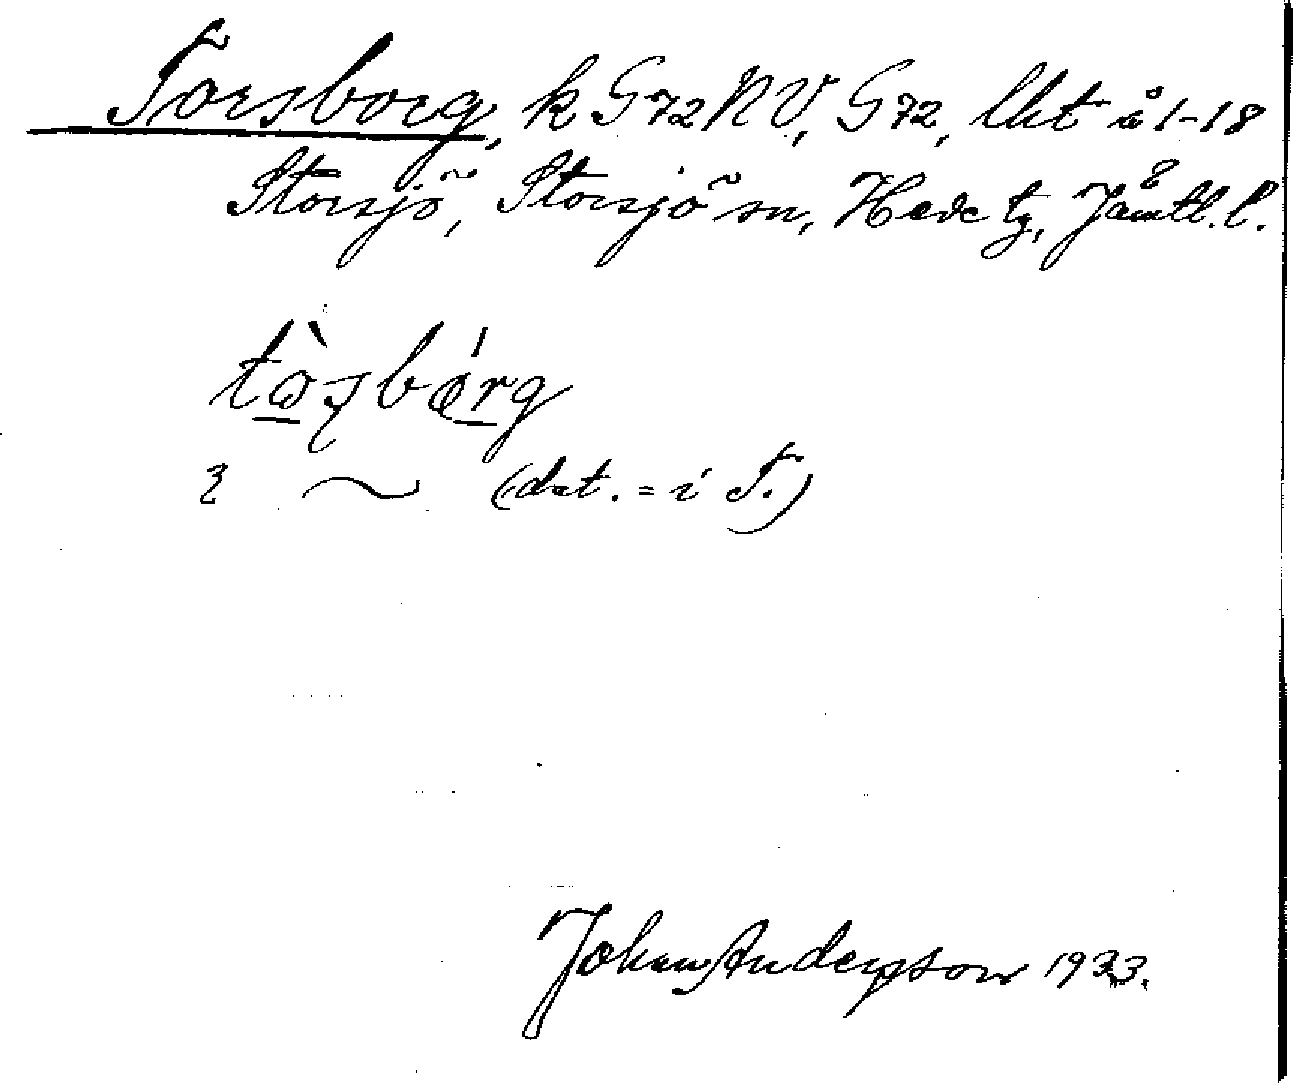 Torsborg, k G72NV, G72, lht å 1-18
Storsjö, Storsjö sn, Hede tg, Jämtl. l.
tɷ̀ʂbórg
ʒ ~ (dat. = i T.)
Johan Anderson 1933.